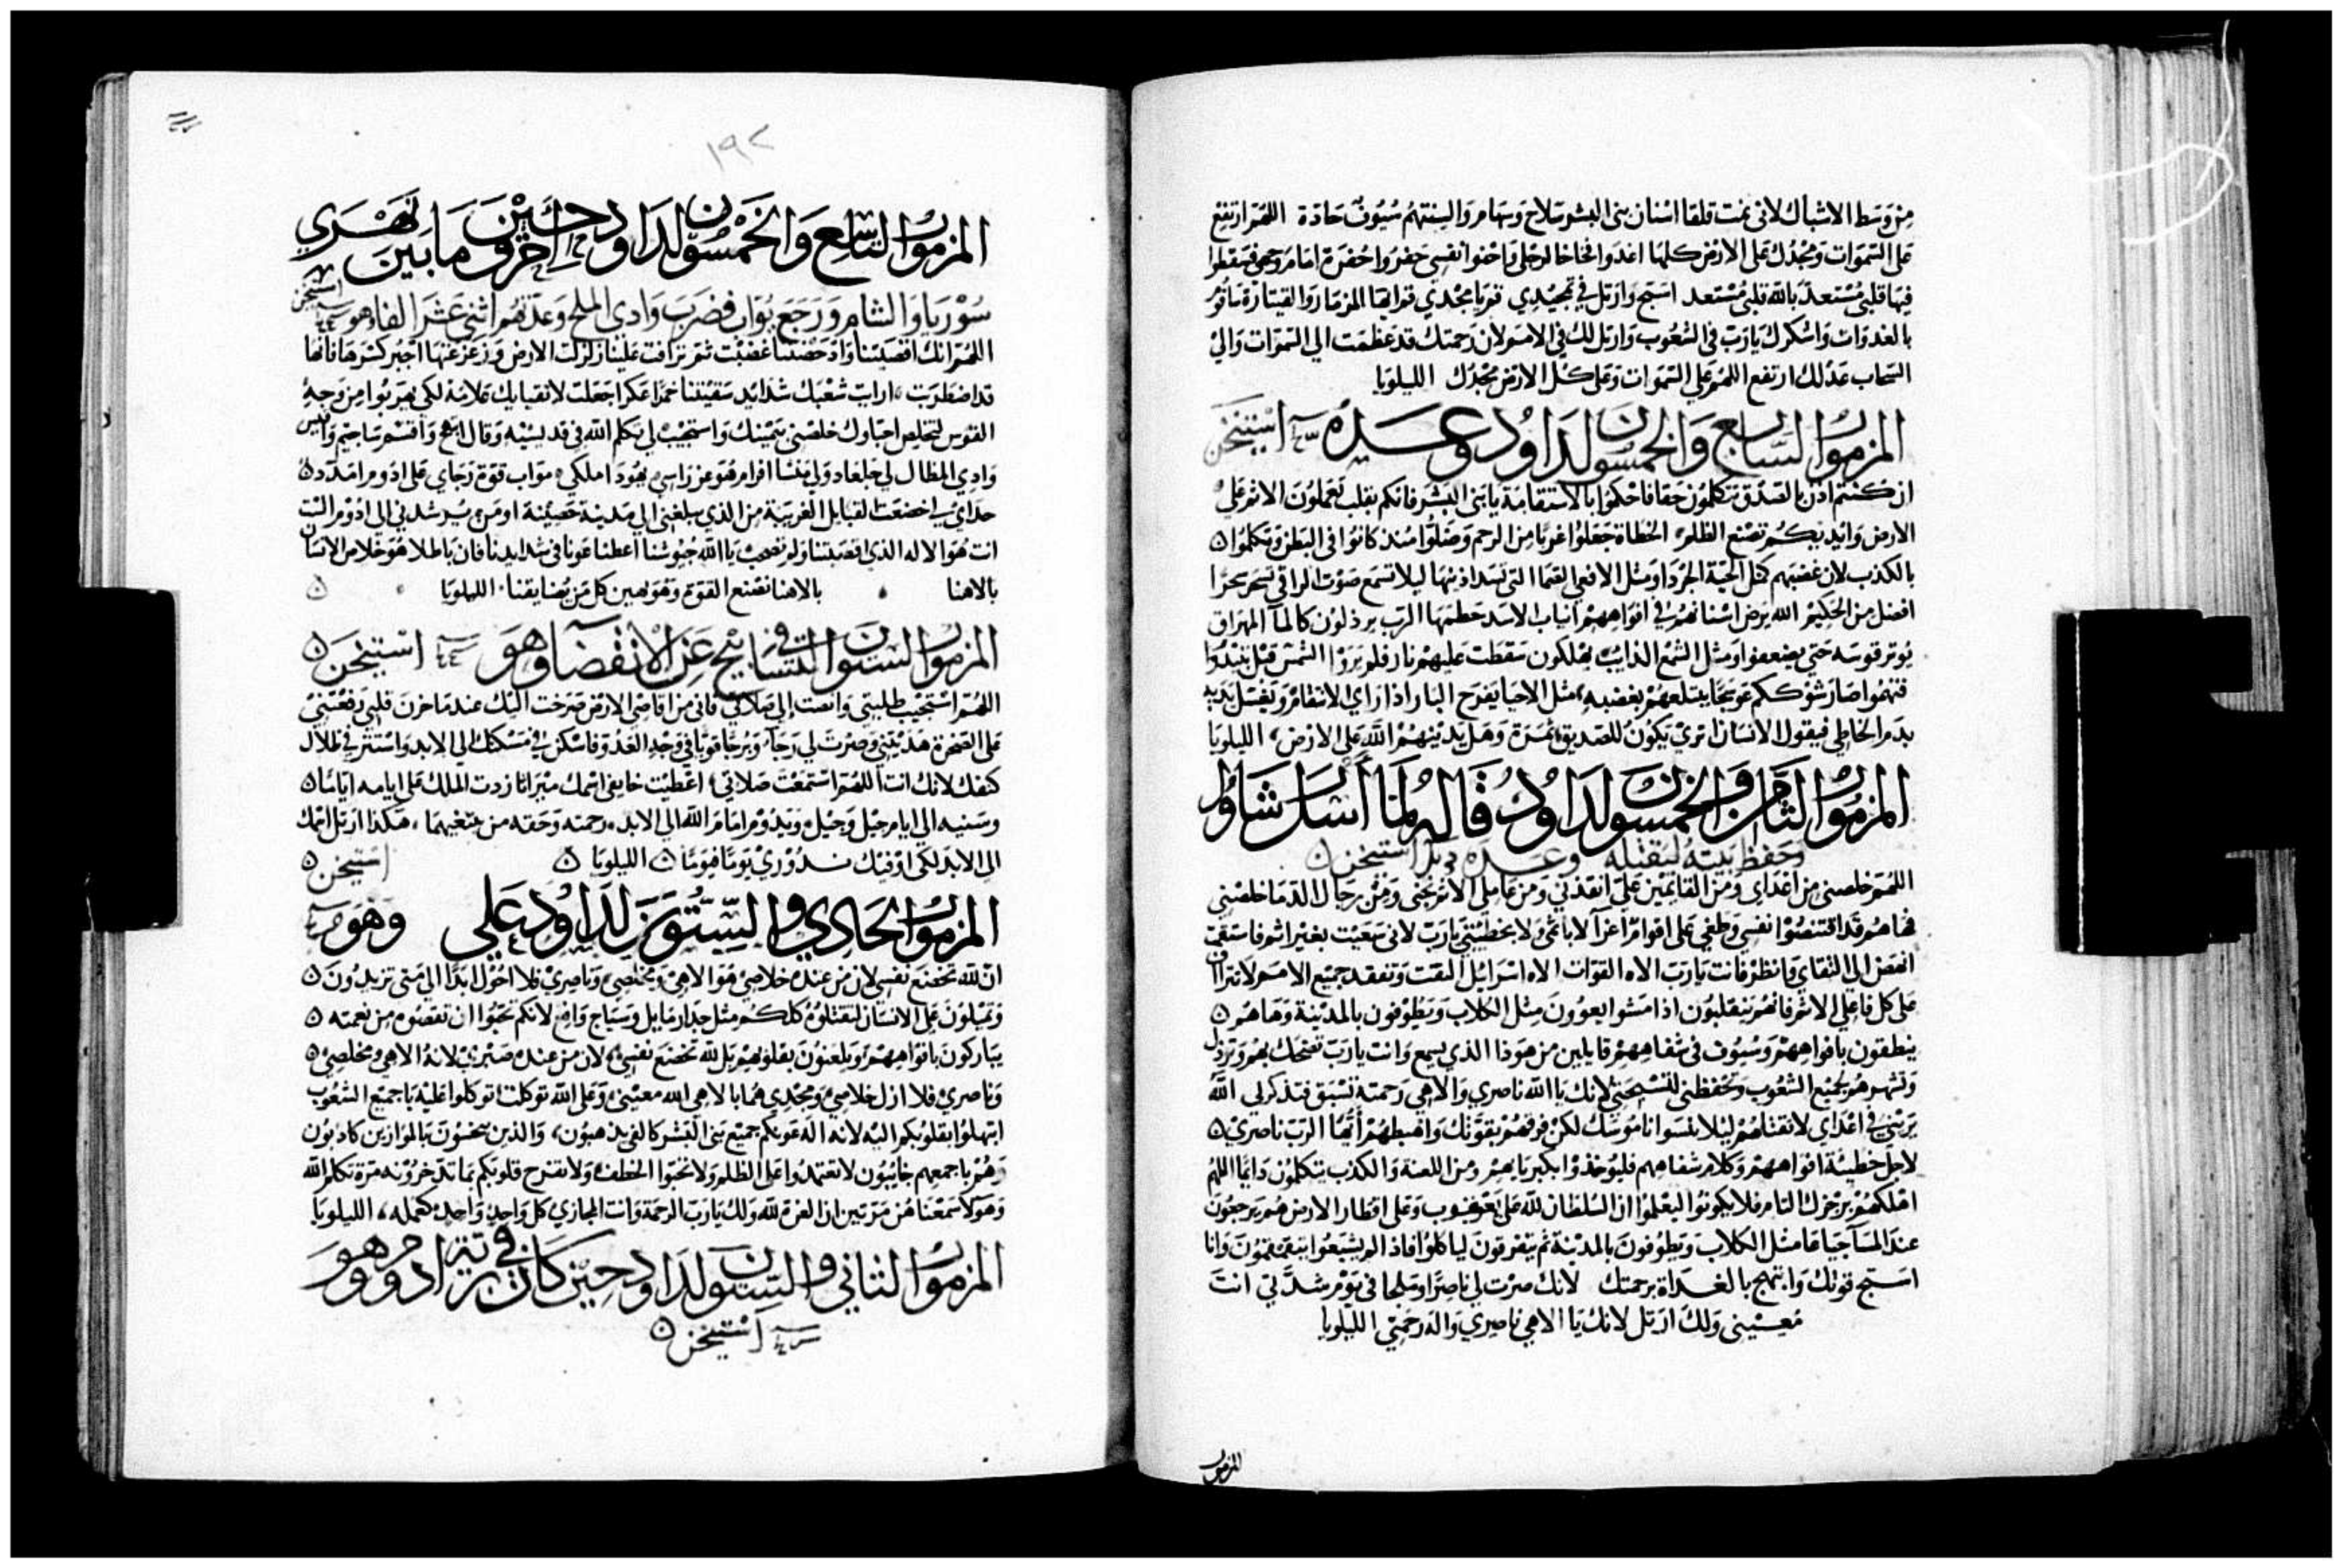 من وسط الاشبال لاني نمت قلقا اسنان بني البشر سلاح وسهام والسنتهم سيوف حادة اللهم ارتفع
على السموات ومجدك على الارض كلها اعدوا فخاخا لرجلي واحنوا نفسي حفروا حفرة امام وجهي فسقطوا
فيها قلبي مستعد يا الله قلبي مستعد اسبح وارتل في تمجيدي قم يا مجدي قم ايها المزمار والقيتارة ساقوم
بالغدوات واشكرك يا رب في الشعوب وارتل لك في الامم لان رحمتك قد عظمت الى السموات والى
السحاب عدلك ارتفع اللهم على السموات وعلى كل الارض مجدك الليلويا
المزمور السابع والخمسون لداود وعدده استيخن
ان كنتم اذن بالصدق تتكلمون حقا فاحكموا بالاستقامة يا بني البشر فانكم بقلب تعملون الاثم على
الارض وايديكم تصنع الظلم الخطاة جعلوا غربا من الرحم وضلوا منذ كانوا في البطن وتكلموا
بالكذب لان غضبهم كمثل الحية الجردا ومثل الافعى الصما التي تسد اذنيها ليلا تسمع صوت الراقي تسحر سحرا
افضل من الحكيم الله يرض اسنانهم في افواههم انياب الاسد حطمها الرب يرذلون كالمآ المهراق
يوتر قوسه حتى يضعفوا ومثل الشمع الذايب يهلكون سقطت عليهم نار فلم يروا الشمس قبل ينبتوا
فتنموا صار شوككم عوسجا يبتلعهم بغضبه مثل الاحيا يفرح البار اذا راى الانتقام ويغسل يديه
بدم الخاطي فيقول الانسان ترى يكون للصديق ثمرة وهل يدينهم الله على الارض الليلويا
المزمور الثامن والخمسون لداود قاله لما ارسل شاول
وحفظ بيته ليقتله وعدده استيخن
اللهم خلصني من اعداي ومن القايمين علي انقذني ومن عاملي الاثم نجني ومن رجال الدما خلصني
فها هم قد اقتنصوا نفسي وطغى على اقوام اعزآ لا باثمي ولا بخطيئتي يا رب لاني سعيت بغير اثم فاستقمت
انهض الى التقاي وانظر فانت يا رب الاه القوات الاه اسرائيل التفت وتفقد جميع الامم لا تترااف
على كل فاعلي الاثم فانهم ينقلبون اذا مشوا يعوون مثل الكلاب ويطوفون بالمدينة وها هم
ينطقون بافواههم وسيوف في شفاههم قايلين من هو ذا الذي يسمع وانت يا رب تضحك بهم وترذل
وتنهر هو بجميع الشعوب وتحفظني لتسبحني لانك يا الله ناصري والاهي رحمته تسبق فتذكر لي الله
يرثيني في اعداي لا تقتلهم ليلا ينسوا ناموسك لكن فرقهم بقوتك واهبطهم ايها الرب ناصري
لاجل خطيئة افواههم وكلام شفاههم فليوخذوا بكبرياهم ومن اللعنة والكذب يتكلمون دايما اللهم
اهلكهم برجزك التام فلا يكونوا ليعلموا ان السلطان لله على يعقوب وعلى اقطار الارض هم يرجعون
عند المسآ جياعا مثل الكلاب ويطوفون بالمدينة ثم يتفرقون لياكلوا فاذا لم يشبعوا يتقمقمون وانا
اسبح قوتك وابتهج بالغداة برحمتك لانك صرت لي ناصرا وملجا في يوم شدتي انت
معيني ولك ارتل لانك يا الاهي ناصري والاه رحمتي الليلويا
المزمور
١٩٢
المزمور التاسع والخمسون لداود حين احرق ما بين نهري
سوريا والشام ورجع يوآب فضرب وادي الملح وعدتهم اثني عشر الفا وهو استيخن
اللهم انك اقصيتنا وادحضتنا غضبت ثم ترافت علينا زلزلت الارض وزعزعتها اجبر كسرها فانها
قد اضطربت ارايت شعبك شدايد سقيتنا خمرا عكرا جعلت لاتقيايك علامة لكي يهربوا من وجه
القوس لتخلص احباوك خلصني بيمينك واستجيب لي تكلم الله في قديسيه وقال ابتهج واقسم ساجيم واقيس
وادي المظال لي جلعاد ولي منسا افرام هو عز راسي يهودا ملكي مواب قوة رجاي على ادوم امدد
حداي لي اخضعت القبايل الغريبة من الذي يبلغني الى مدينة حصينة او من يرشدني الى ادوم الست
انت هو الاله الذي اقصيتنا ولم تصحب يا الله جيوشنا اعطنا عونا في شدايدنا فان باطلا هو خلاص الانسان
بالاهنا بالاهنا نصنع القوة وهو يهين كل من يضايقنا الليلويا
المزمور الستون في التسابيح عن الانقضآ وهو استيخن
اللهم استجيب طلبتي وانصت الى صلاتي فاني من اقاصي الارض صرخت اليك عندما حزن قلبي رفعتني
على الصخرة هديتني وصرت لي رجا وبرجا قويا في وجه العدو فاسكن في مسكنك الى الابد واستتر في ظلال
كنفك لانك انت اللهم استمعت صلاتي اعطيت خايفي اسمك ميراثا زدت الملك على ايامه اياما
وسنيه الى ايام جيل وجيل ويدوم امام الله الى الابد رحمته وحقه من يبتغيهما هكذا ارتل اسمك
الى الابد لكي اوفيك نذوري يوما فيوما الليلويا استيخن
المزمور الحادي والستون لداود على وهو
ان لله تخضع نفسي لان من عنده خلاصي هو الاهي ومخلصي وناصري فلا احول ابدا الى متى تزيدون
وتميلون على الانسان لتقتلوه كلكم مثل جدار مايل وسياج واقع لانكم تحبوا ان تقصوه من نعمته
يباركون بافواههم ويلعنون بقلوبهم بل لله تخضع نفسي لان من عنده صبري لانه الاهي ومخلصي
وناصري فلا ازل خلاصي ومجدي هما بالاهي الله معيني وعلى الله توكلت اتوكلوا عليه يا جميع الشعوب
ابتهلوا بقلوبكم اليه لانه اله عونكم جميع بني البشر كالفي يذهبون والذين يبخسون بالموازين كاذبون
وهم باجمعهم خايبون لا تعتمدوا على الظلم ولا تحبوا الخطف ولا تفرح قلوبكم بما تدخرونه مرة تكلم الله
وهولا سمعناهن مرتين ان العزة لله ولك يا رب الرحمة وانت المجازي كل واحد واحد كعمله الليلويا
المزمور الثاني والستون لداود حين كان في برية ادوم وهو
استيخن